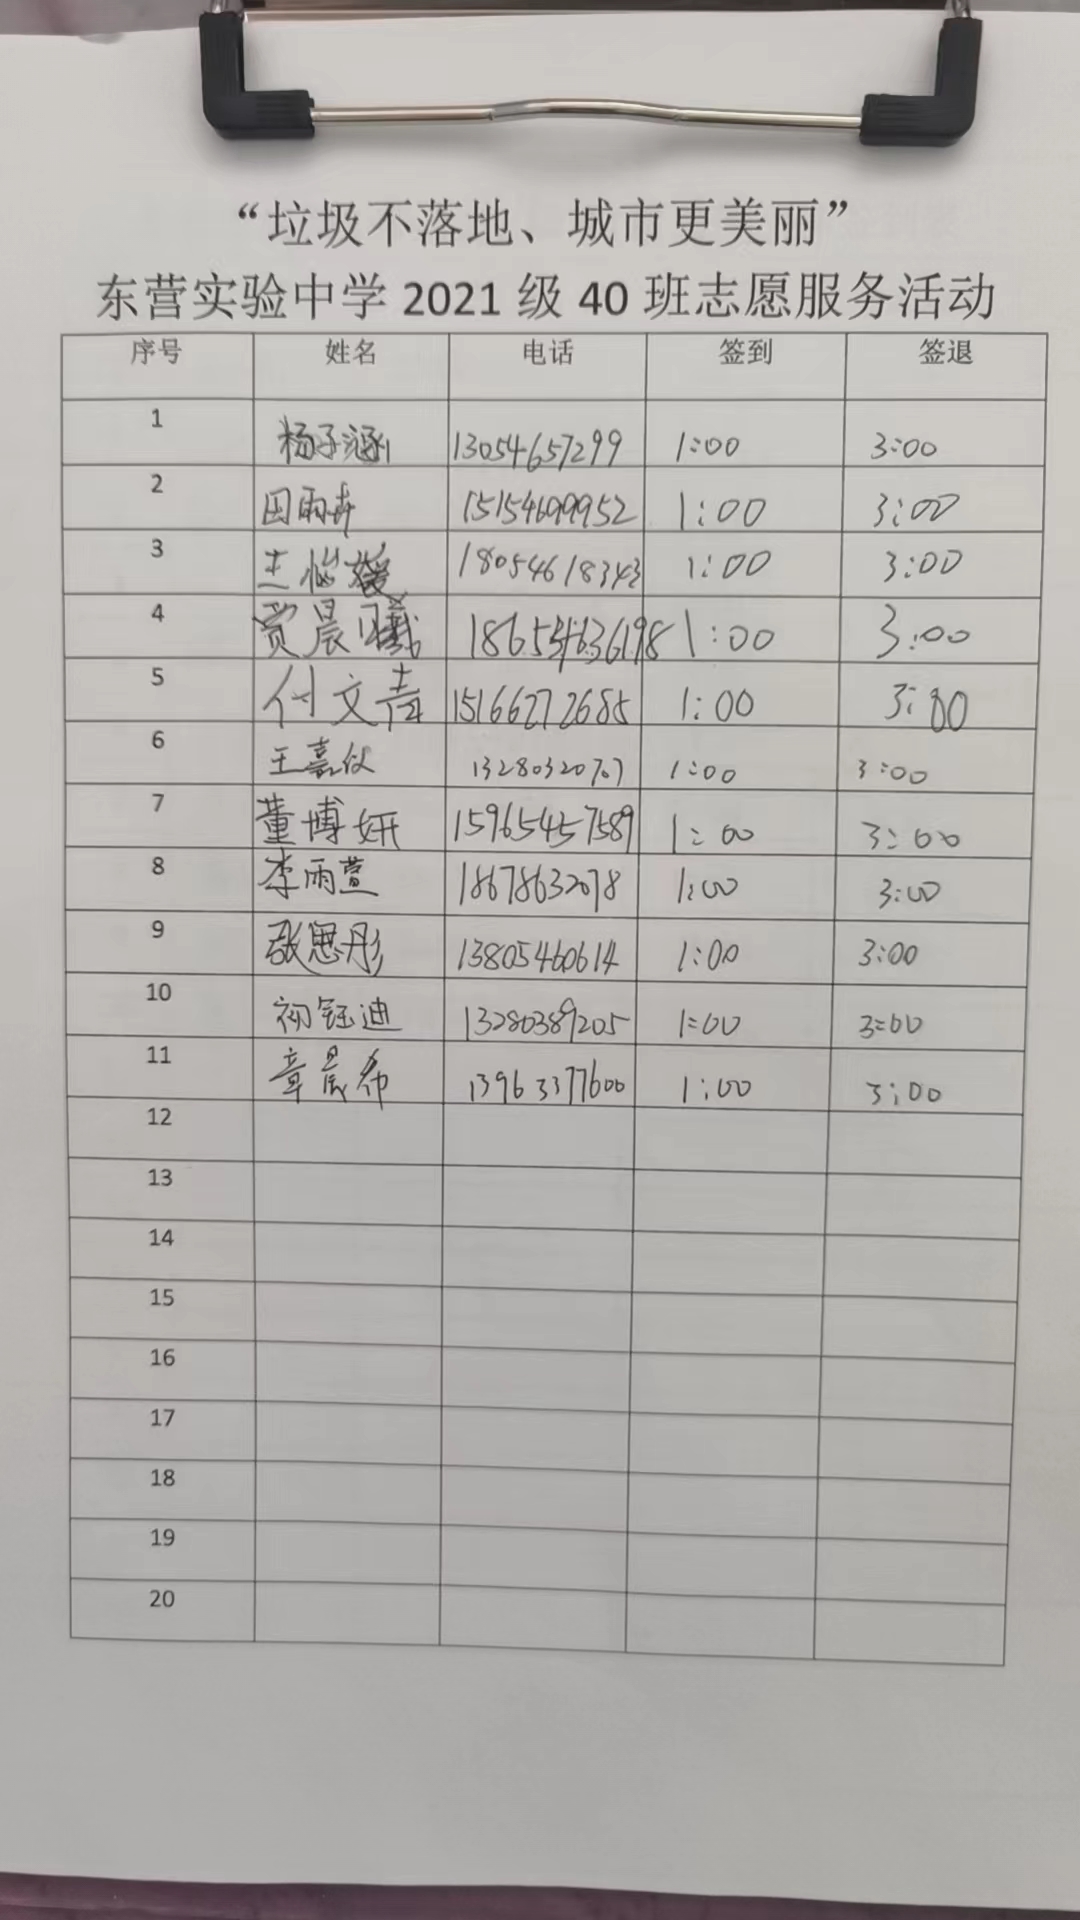 “垃圾不落地、城市更美丽”
东营实验中学 2021 级 40 班志愿服务活动
序号 姓名 电话 签到 签退
1 杨子涵 13054657299 1:00 3:00
2 田雨卉 15154699952 1:00 3:00
3 王 18054618343 1:00 3:00
4 贾晨曦 1:00 3:00
5 付文青 15166272685 1:00 3:00
6 王嘉仪 13280320707 1:00 3:00
7 董博妍 15965457589 1:00 3:00
8 李雨萱 18678632078 1:00 3:00
9 张思彤 13805460614 1:00 3:00
10 初钰迪 13280389205 1:00 3:00
11 章晨希 13963377600 1:00 3:00
12
13
14
15
16
17
18
19
20